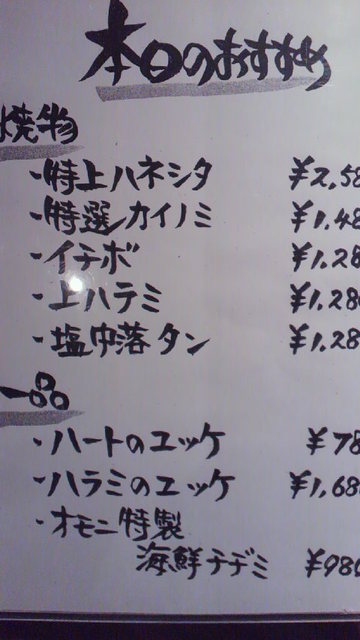 本日のおすすめ
焼物
・特上ハネシタ ¥2,58
・特選カイノミ ¥1,48
・イチボ ¥1,28
・上ハラミ ¥1,28
・塩中落タン ¥1,28
一品
・ハートのユッケ ¥78
・ハラミのユッケ ¥1,68
・オモニ特製
海鮮チヂミ ¥980